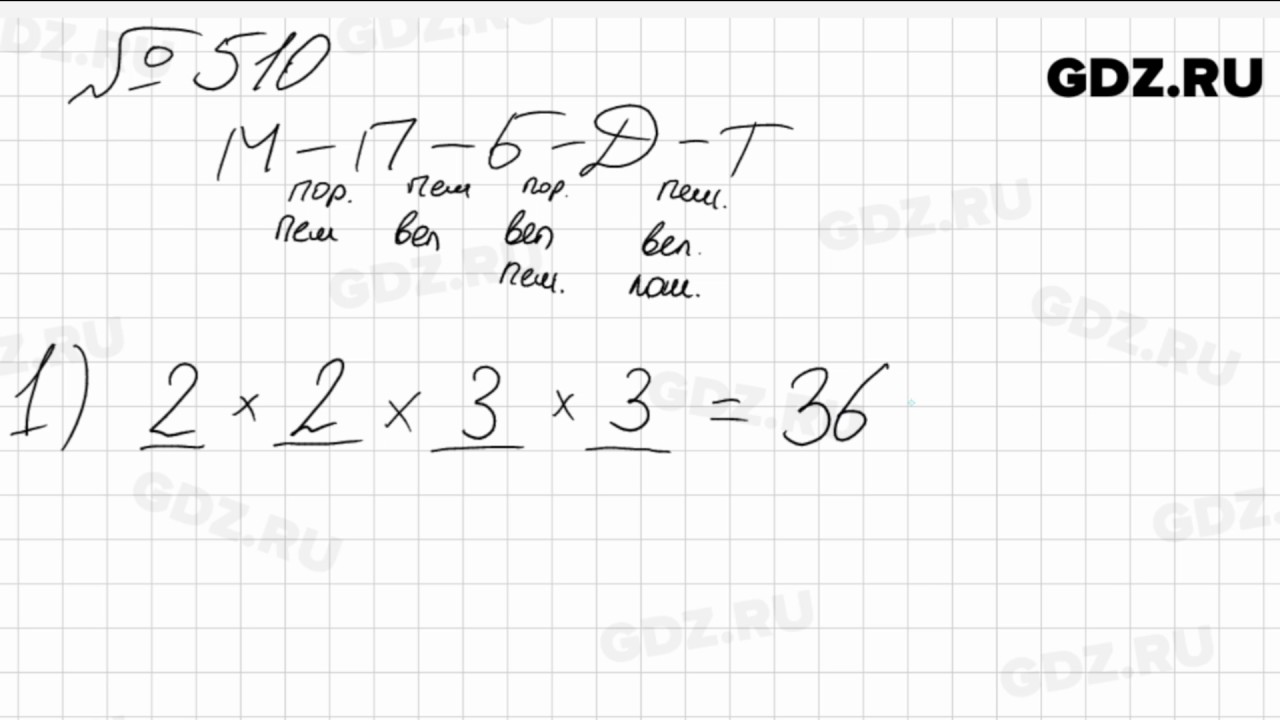 № 510
GDZ.RU
М – П – Б – Д – Т
пор. пеш пор. пеш.
пеш вел вел вел.
пеш. лош.
1) 2 × 2 × 3 × 3 = 36